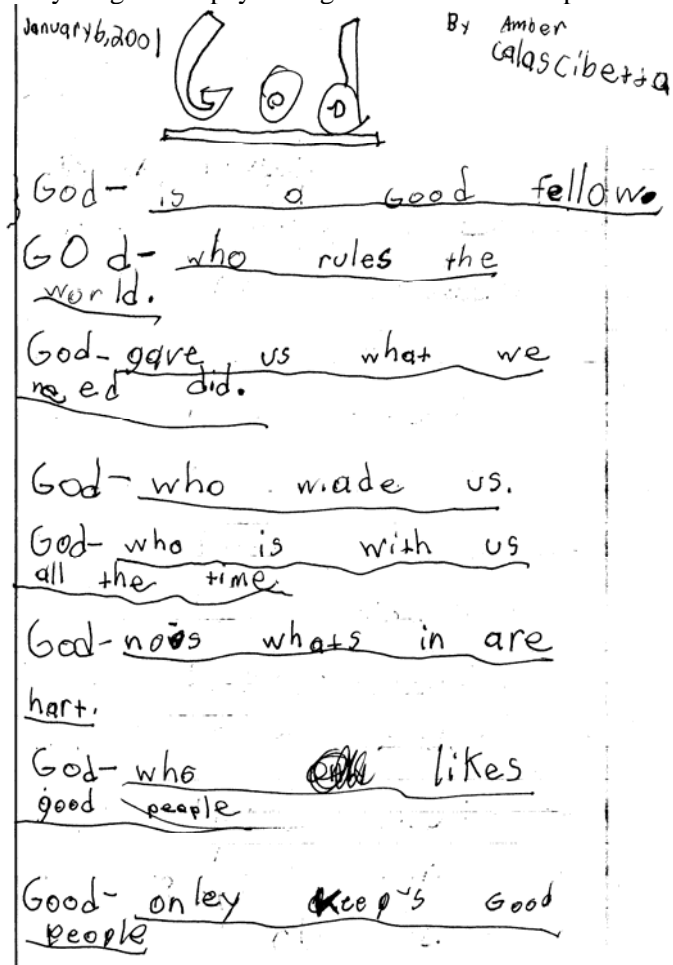 January 6, 2001
By Amber
Calascibetta
God
God- is a Good fellow.
GOd- who rules the
world.
God- gave us what we
need did.
God- who made us.
God- who is with us
all the time
God- nos whats in are
hart.
God- who likes
good people
Good- onley Keep's Good
people